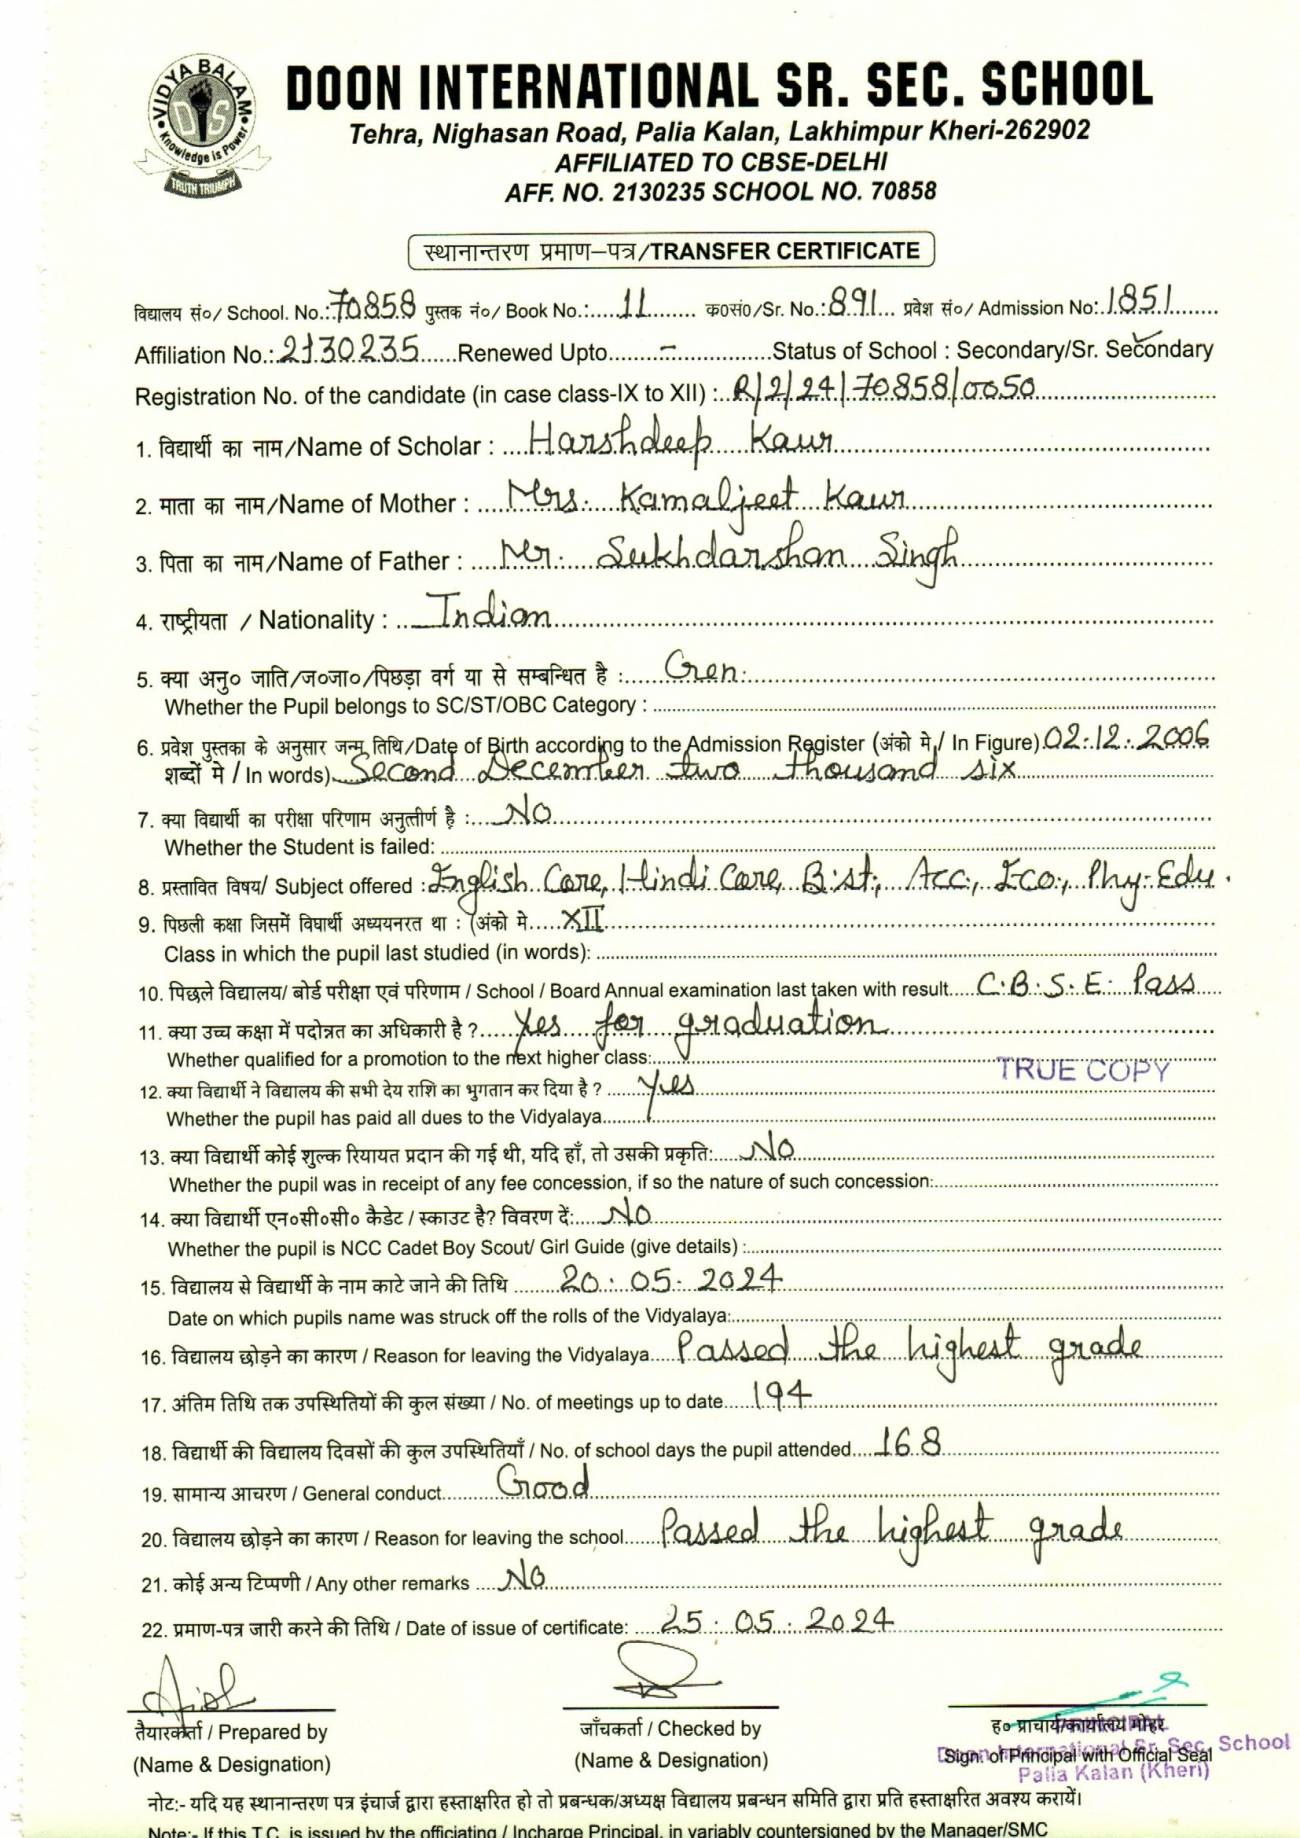 VIDYA BALAM
DIS
Knowledge is Power
TRUTH TRIUMPH
DOON INTERNATIONAL SR. SEC. SCHOOL
Tehra, Nighasan Road, Palia Kalan, Lakhimpur Kheri-262902
AFFILIATED TO CBSE-DELHI
AFF. NO. 2130235 SCHOOL NO. 70858
स्थानान्तरण प्रमाण–पत्र/TRANSFER CERTIFICATE
विद्यालय सं०/ School. No.: 70858 पुस्तक नं०/ Book No.: 11 क०सं०/Sr. No.: 891 प्रवेश सं०/ Admission No: 1851
Affiliation No.: 2130235 Renewed Upto - Status of School : Secondary/Sr. Secondary
Registration No. of the candidate (in case class-IX to XII) : R/2/24/70858/0050
1. विद्यार्थी का नाम/Name of Scholar : Harshdeep Kaur
2. माता का नाम/Name of Mother : Mrs. Kamaljeet Kaur
3. पिता का नाम/Name of Father : Mr. Sukhdarshan Singh
4. राष्ट्रीयता / Nationality : Indian
5. क्या अनु० जाति/ज०जा०/पिछड़ा वर्ग या से सम्बन्धित है : Gen.
Whether the Pupil belongs to SC/ST/OBC Category :
6. प्रवेश पुस्तका के अनुसार जन्म तिथि/Date of Birth according to the Admission Register (अंको मे / In Figure) 02.12.2006
शब्दों मे / In words) Second December two thousand six
7. क्या विद्यार्थी का परीक्षा परिणाम अनुत्तीर्ण है : No
Whether the Student is failed:
8. प्रस्तावित विषय/ Subject offered : English Core, Hindi Core, B.st., Acc., Eco., Phy. Edu.
9. पिछली कक्षा जिसमें विघार्थी अध्ययनरत था : (अंको मे XII
Class in which the pupil last studied (in words):
10. पिछले विद्यालय/ बोर्ड परीक्षा एवं परिणाम / School / Board Annual examination last taken with result C.B.S.E. Pass
11. क्या उच्च कक्षा में पदोन्नत का अधिकारी है ? Yes for graduation
Whether qualified for a promotion to the next higher class:
TRUE COPY
12. क्या विद्यार्थी ने विद्यालय की सभी देय राशि का भुगतान कर दिया है ? Yes
Whether the pupil has paid all dues to the Vidyalaya
13. क्या विद्यार्थी कोई शुल्क रियायत प्रदान की गई थी, यदि हाँ, तो उसकी प्रकृति: No
Whether the pupil was in receipt of any fee concession, if so the nature of such concession:
14. क्या विद्यार्थी एन०सी०सी० कैडेट / स्काउट है? विवरण दें: No
Whether the pupil is NCC Cadet Boy Scout/ Girl Guide (give details) :
15. विद्यालय से विद्यार्थी के नाम काटे जाने की तिथि 20.05.2024
Date on which pupils name was struck off the rolls of the Vidyalaya:
16. विद्यालय छोड़ने का कारण / Reason for leaving the Vidyalaya Passed the highest grade
17. अंतिम तिथि तक उपस्थितियों की कुल संख्या / No. of meetings up to date 194
18. विद्यार्थी की विद्यालय दिवसों की कुल उपस्थितियाँ / No. of school days the pupil attended 168
19. सामान्य आचरण / General conduct Good
20. विद्यालय छोड़ने का कारण / Reason for leaving the school Passed the highest grade
21. कोई अन्य टिप्पणी / Any other remarks No
22. प्रमाण-पत्र जारी करने की तिथि / Date of issue of certificate: 25.05.2024
तैयारकर्ता / Prepared by जाँचकर्ता / Checked by ह० प्राचार्य/कार्यालय मोहर
PRINCIPAL
(Name & Designation) (Name & Designation) Sign. of Principal with Official Seal
Doon International Sr. Sec. School
Palia Kalan (Kheri)
नोट:- यदि यह स्थानान्तरण पत्र इंचार्ज द्वारा हस्ताक्षरित हो तो प्रबन्धक/अध्यक्ष विद्यालय प्रबन्धन समिति द्वारा प्रति हस्ताक्षरित अवश्य करायें।
Note:- If this T.C. is issued by the officiating / Incharge Principal, in variably countersigned by the Manager/SMC